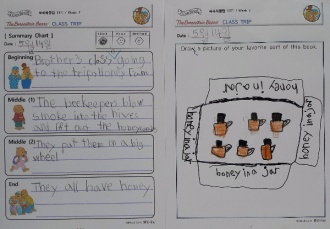 The Berenstain Bears CLASS TRIP
[ Summary Chart ]
Date : 5월14일
Beginning
Brother's class going
to the trip honey Farm.
Middle (1)
The beekeepers blow
smoke into the hives
and lift out the honeycombs
Middle (2)
They put them on a big
wheel
End
They all have honey
The Berenstain Bears CLASS TRIP
Date : 5월14일
Draw a picture of your favorite part of this book.
honey in a jar
honey in a jar
honey in a jar
honey in a jar